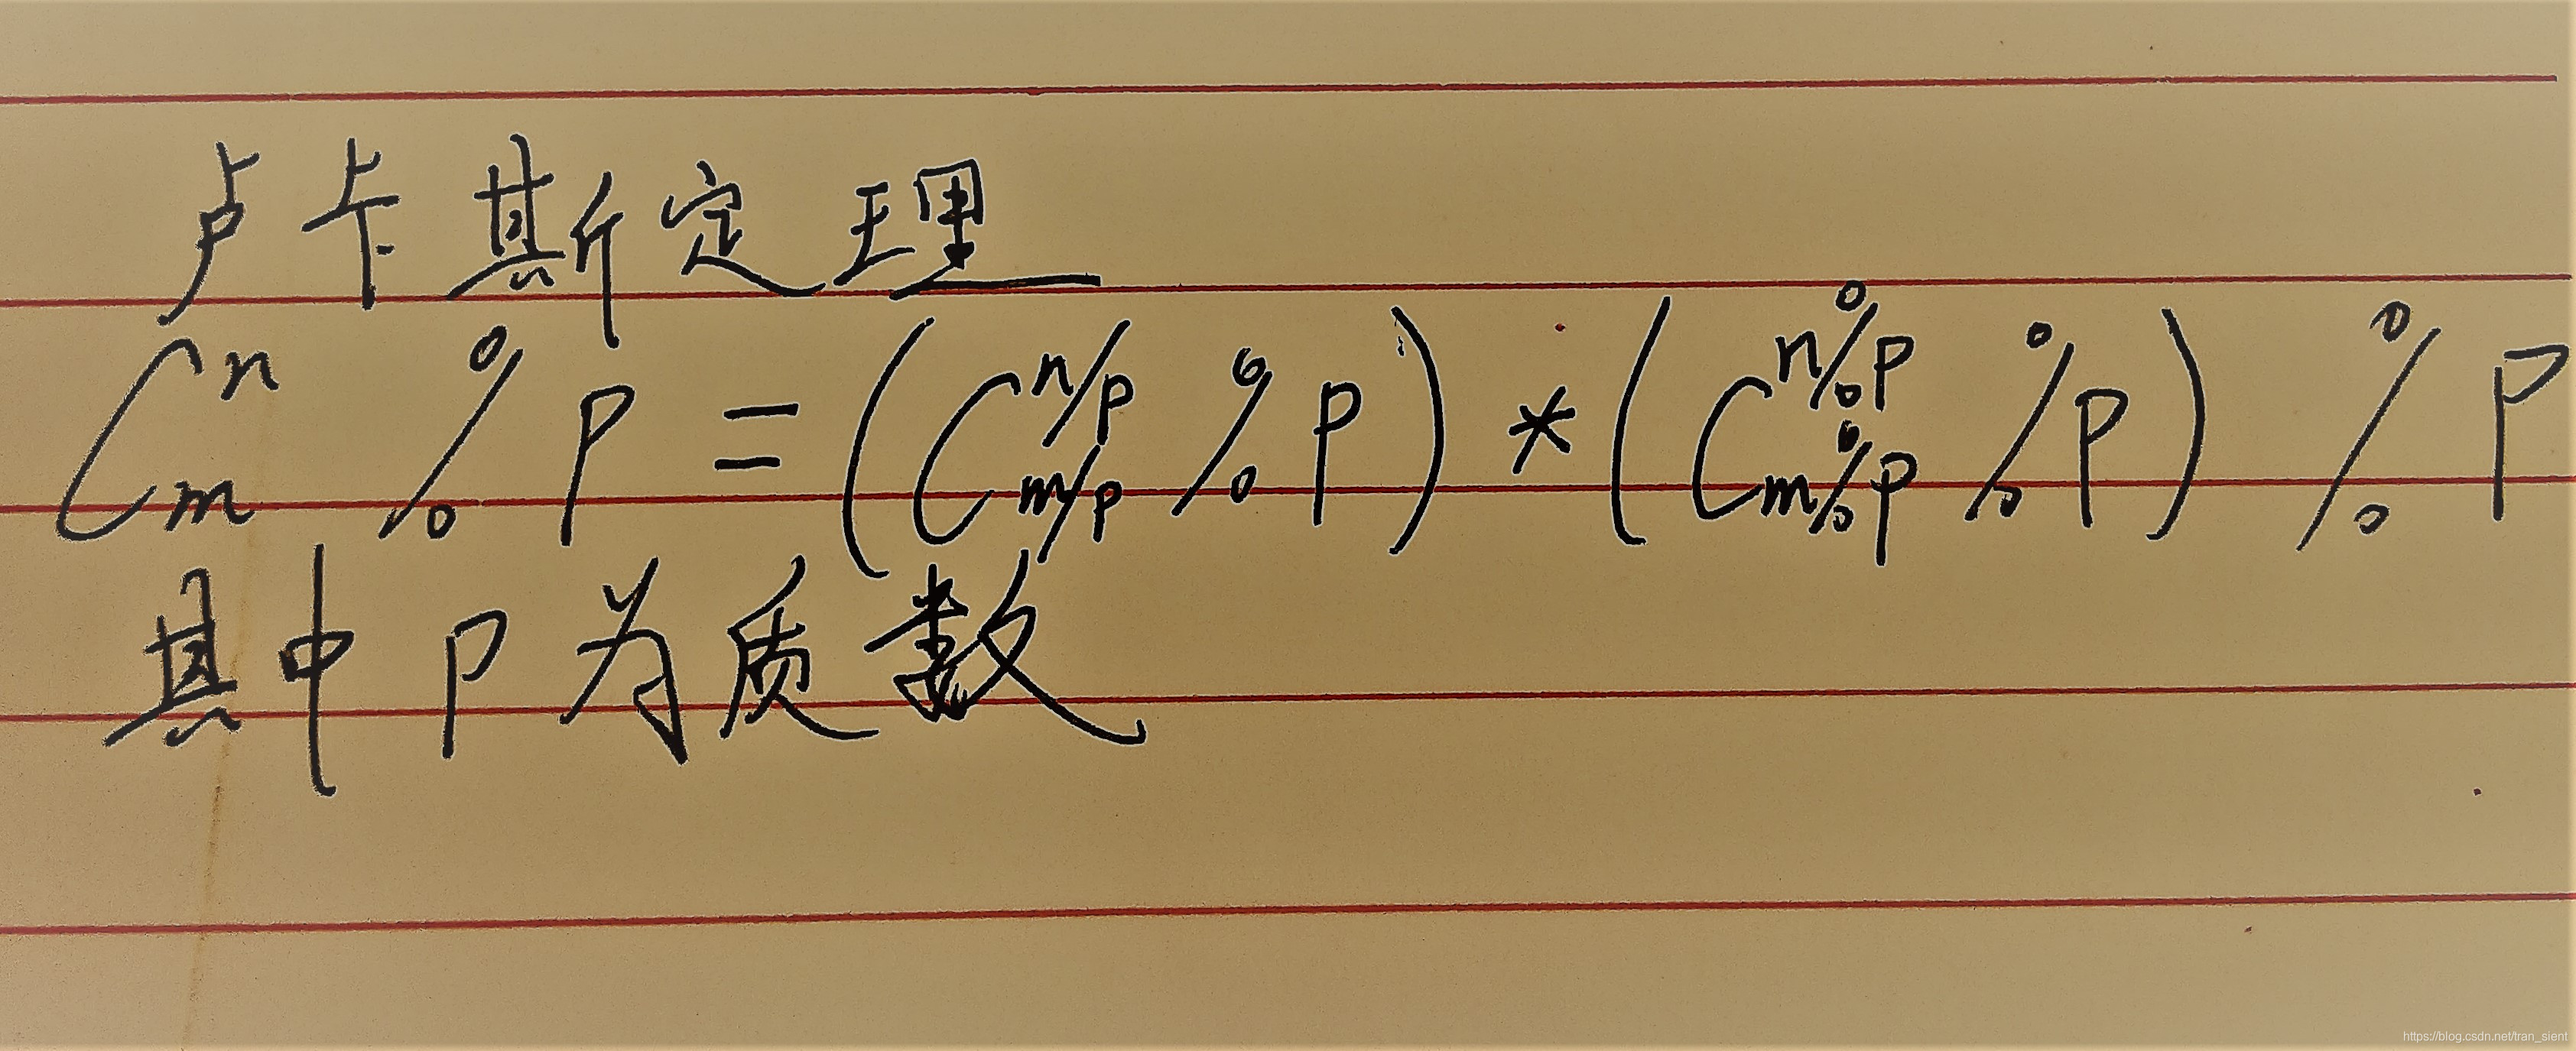 卢卡斯定理
C_m^n % P = (C_{m/p}^{n/p} % P) * (C_{m%p}^{n%p} % P) % P
其中P为质数
https://blog.csdn.net/tran_sient